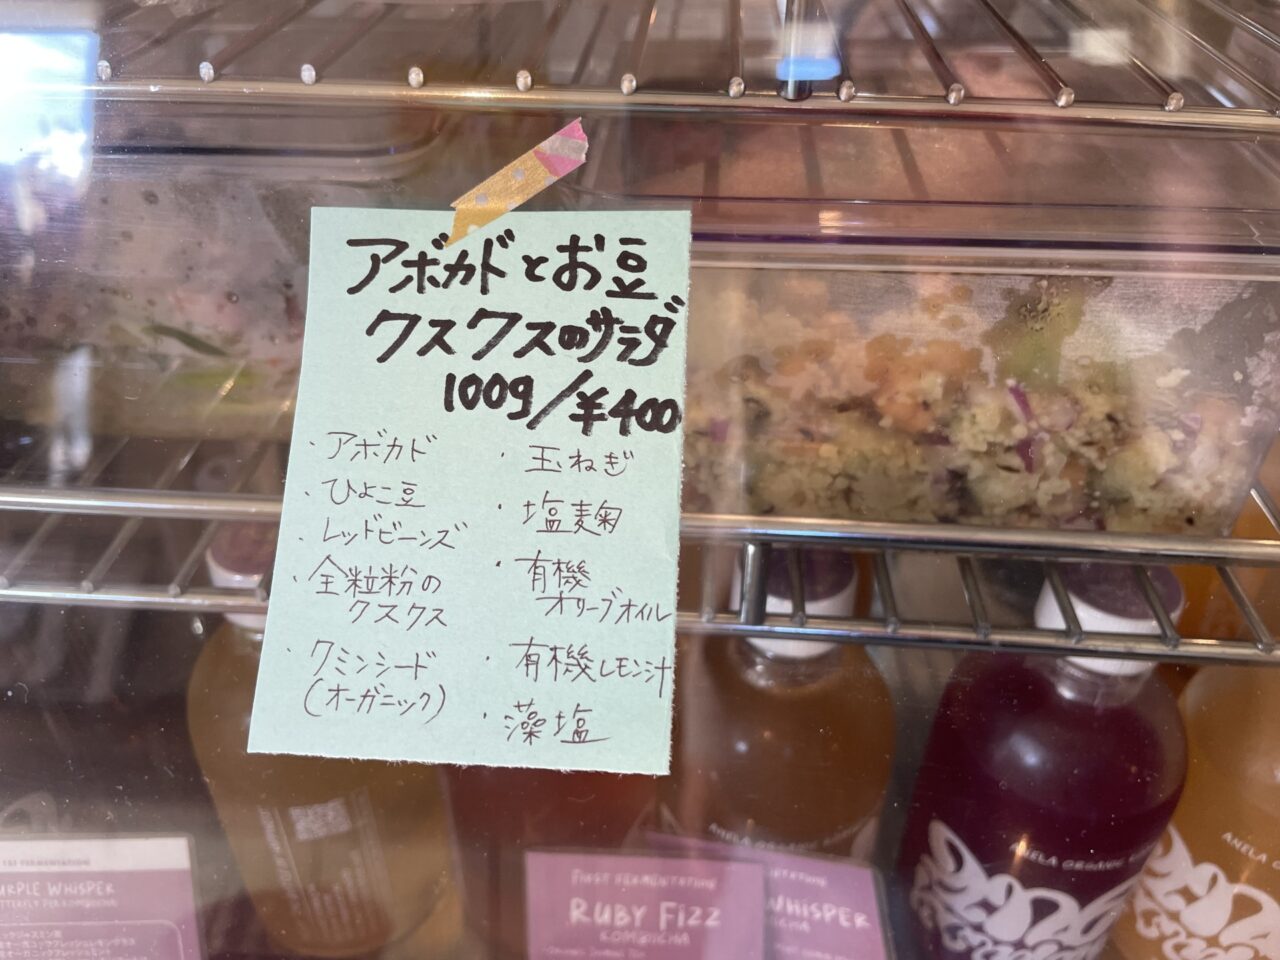 アボカドとお豆
クスクスのサラダ
100g/¥400
・アボカド
・ひよこ豆
・レッドビーンズ
・全粒粉の
クスクス
・クミンシード
(オーガニック)
・玉ねぎ
・塩麦麹
・有機
オリーブオイル
・有機レモン汁
・藻塩
1ST FERMENTATION
PURPLE WHISPER
BUTTERFLY PEA KOMBUCHA
FIRST FERMENTATION
RUBY FIZZ
KOMBUCHA
WHISPER
ANELA ORGANIC
ANELA ORGANIC
ANELA